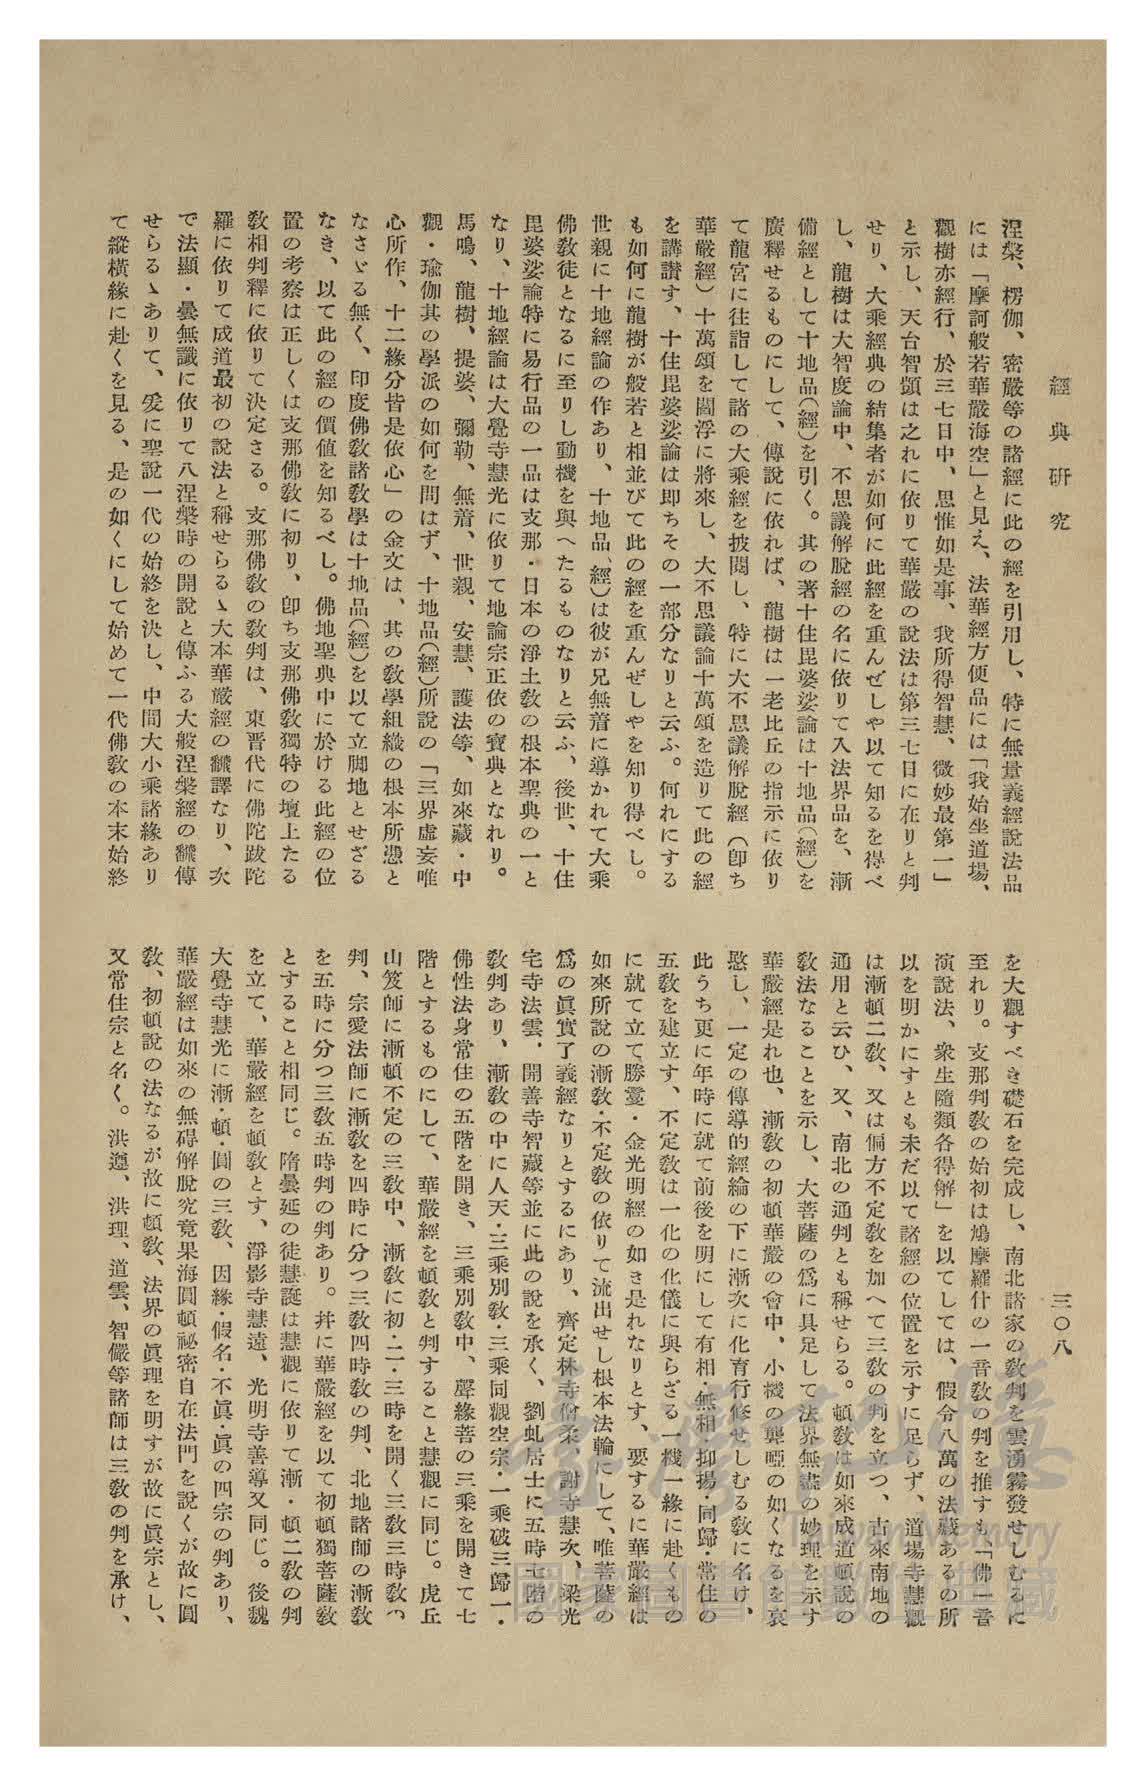 經典研究
三〇八
涅槃、楞伽、密嚴等の諸經に此の經を引用し、特に無量義經說法品
には「摩訶般若華嚴海空」と見え、法華經方便品には「我始坐道場、
觀樹亦經行、於三七日中、思惟如是事、我所得智慧、微妙最第一」
と示し、天台智顗は之れに依りて華嚴の說法は第三七日に在りと判
せり、大乘經典の結集者が如何に此經を重んぜしや以て知るを得べ
し、龍樹は大智度論中、不思議解脫經の名に依りて入法界品を、漸
備經として十地品（經）を引く。其の著十住毘婆娑論は十地品（經）を
廣釋せるものにして、傳說に依れば、龍樹は一老比丘の指示に依り
て龍宮に往詣して諸の大乘經を披閱し、特に大不思議解脫經（卽ち
華嚴經）十萬頌を閻浮に將來し、大不思議論十萬頌を造りて此の經
を講讃す、十住毘婆娑論は卽ちその一部分なりと云ふ。何れにする
も如何に龍樹が般若と相並びて此の經を重んぜしやを知り得べし。
世親に十地經論の作あり、十地品（經）は彼が兄無着に導かれて大乘
佛敎徒となるに至りし動機を與へたるものなりと云ふ、後世、十住
毘婆娑論特に易行品の一品は支那・日本の淨土敎の根本聖典の一と
なり、十地經論は大覺寺慧光に依りて地論宗正依の寶典となれり。
馬鳴、龍樹、提婆、彌勒、無着、世親、安慧、護法等、如來藏・中
觀・瑜伽其の學派の如何を問はず、十地品（經）所說の「三界虛妄唯
心所作、十二緣分皆是依心」の金文は、其の敎學組織の根本所憑と
なさゞる無く、印度佛敎諸敎學は十地品（經）を以て立脚地とせざる
なき、以て此の經の價値を知るべし。佛地聖典中に於ける此經の位
置の考察は正しくは支那佛敎に初り、卽ち支那佛敎獨特の壇上たる
敎相判釋に依りて決定さる。支那佛敎の敎判は、東晋代に佛陀跋陀
羅に依りて成道最初の說法と稱せらるゝ大本華嚴經の飜譯なり、次
で法顯・曇無讖に依りて八涅槃時の開說と傳ふる大般涅槃經の飜傳
せらるゝありて、爰に聖說一代の始終を決し、中間大小乘諸緣あり
て縱橫緣に赴くを見る、是の如くにして始めて一代佛敎の本末始終
を大觀すべき礎石を完成し、南北諸家の敎判を雲湧霧發せしむるに
至れり。支那判敎の始初は鳩摩羅什の一音敎の判を推すも、「佛一音
演說法、衆生隨類各得解」を以てしては、假令八萬の法藏あるの所
以を明かにすとも未だ以て諸經の位置を示すに足らず、道場寺慧觀
は漸頓二敎、又は偏方不定敎を加へて三敎の判を立つ、古來南地の
通用と云ひ、又、南北の通判とも稱せらる。頓敎は如來成道頓說の
敎法なることを示し、大菩薩の爲に具足して法界無盡の妙理を示す
華嚴經是れ也、漸敎の初頓華嚴の會中、小機の聾啞の如くなるを哀
愍し、一定の傳導的經綸の下に漸次に化育行修せしむる敎に名け、
此うち更に年時に就て前後を明にして有相・無相・抑揚・同歸・常住の
五敎を建立す、不定敎は一化の化儀に與らざる一機一緣に赴くもの
に就て立て勝鬘・金光明經の如き是れなりとす、要するに華嚴經は
如來所說の漸敎・不定敎の依りて流出せし根本法輪にして、唯菩薩の
爲の眞實了義經なりとするにあり、齊定林寺僧柔、謝寺慧次、梁光
宅寺法雲、開善寺智藏等並に此の說を承く、劉虬居士に五時七階の
敎判あり、漸敎の中に人天・三乘別敎・三乘同觀空宗・一乘破三歸一・
佛性法身常住の五階を開き、三乘別敎中、聲緣菩の三乘を開きて七
階とするものにして、華嚴經を頓敎と判ずること慧觀に同じ。虎丘
山笈師に漸頓不定の三敎中、漸敎に初・二・三時を開く三敎三時敎の
判、宗愛法師に漸敎を四時に分つ三敎四時敎の判、北地諸師の漸敎
を五時に分つ三敎五時判の判あり。幷に華嚴經を以て初頓獨菩薩敎
とすること相同じ。隋曇延の徒慧誕は慧觀に依りて漸・頓二敎の判
を立て、華嚴經を頓敎とす、淨影寺慧遠、光明寺善導又同じ。後魏
大覺寺慧光に漸・頓・圓の三敎、因緣・假名・不眞・眞の四宗の判あり、
華嚴經は如來の無碍解脫究竟果海圓頓祕密自在法門を說くが故に圓
敎、初頓說の法なるが故に頓敎、法界の眞理を明すが故に眞宗とし、
又常住宗と名く。洪遵、洪理、道雲、智儼等諸師は三敎の判を承け、
臺灣記憶
Taiwan Memory
國家圖書館數位典藏